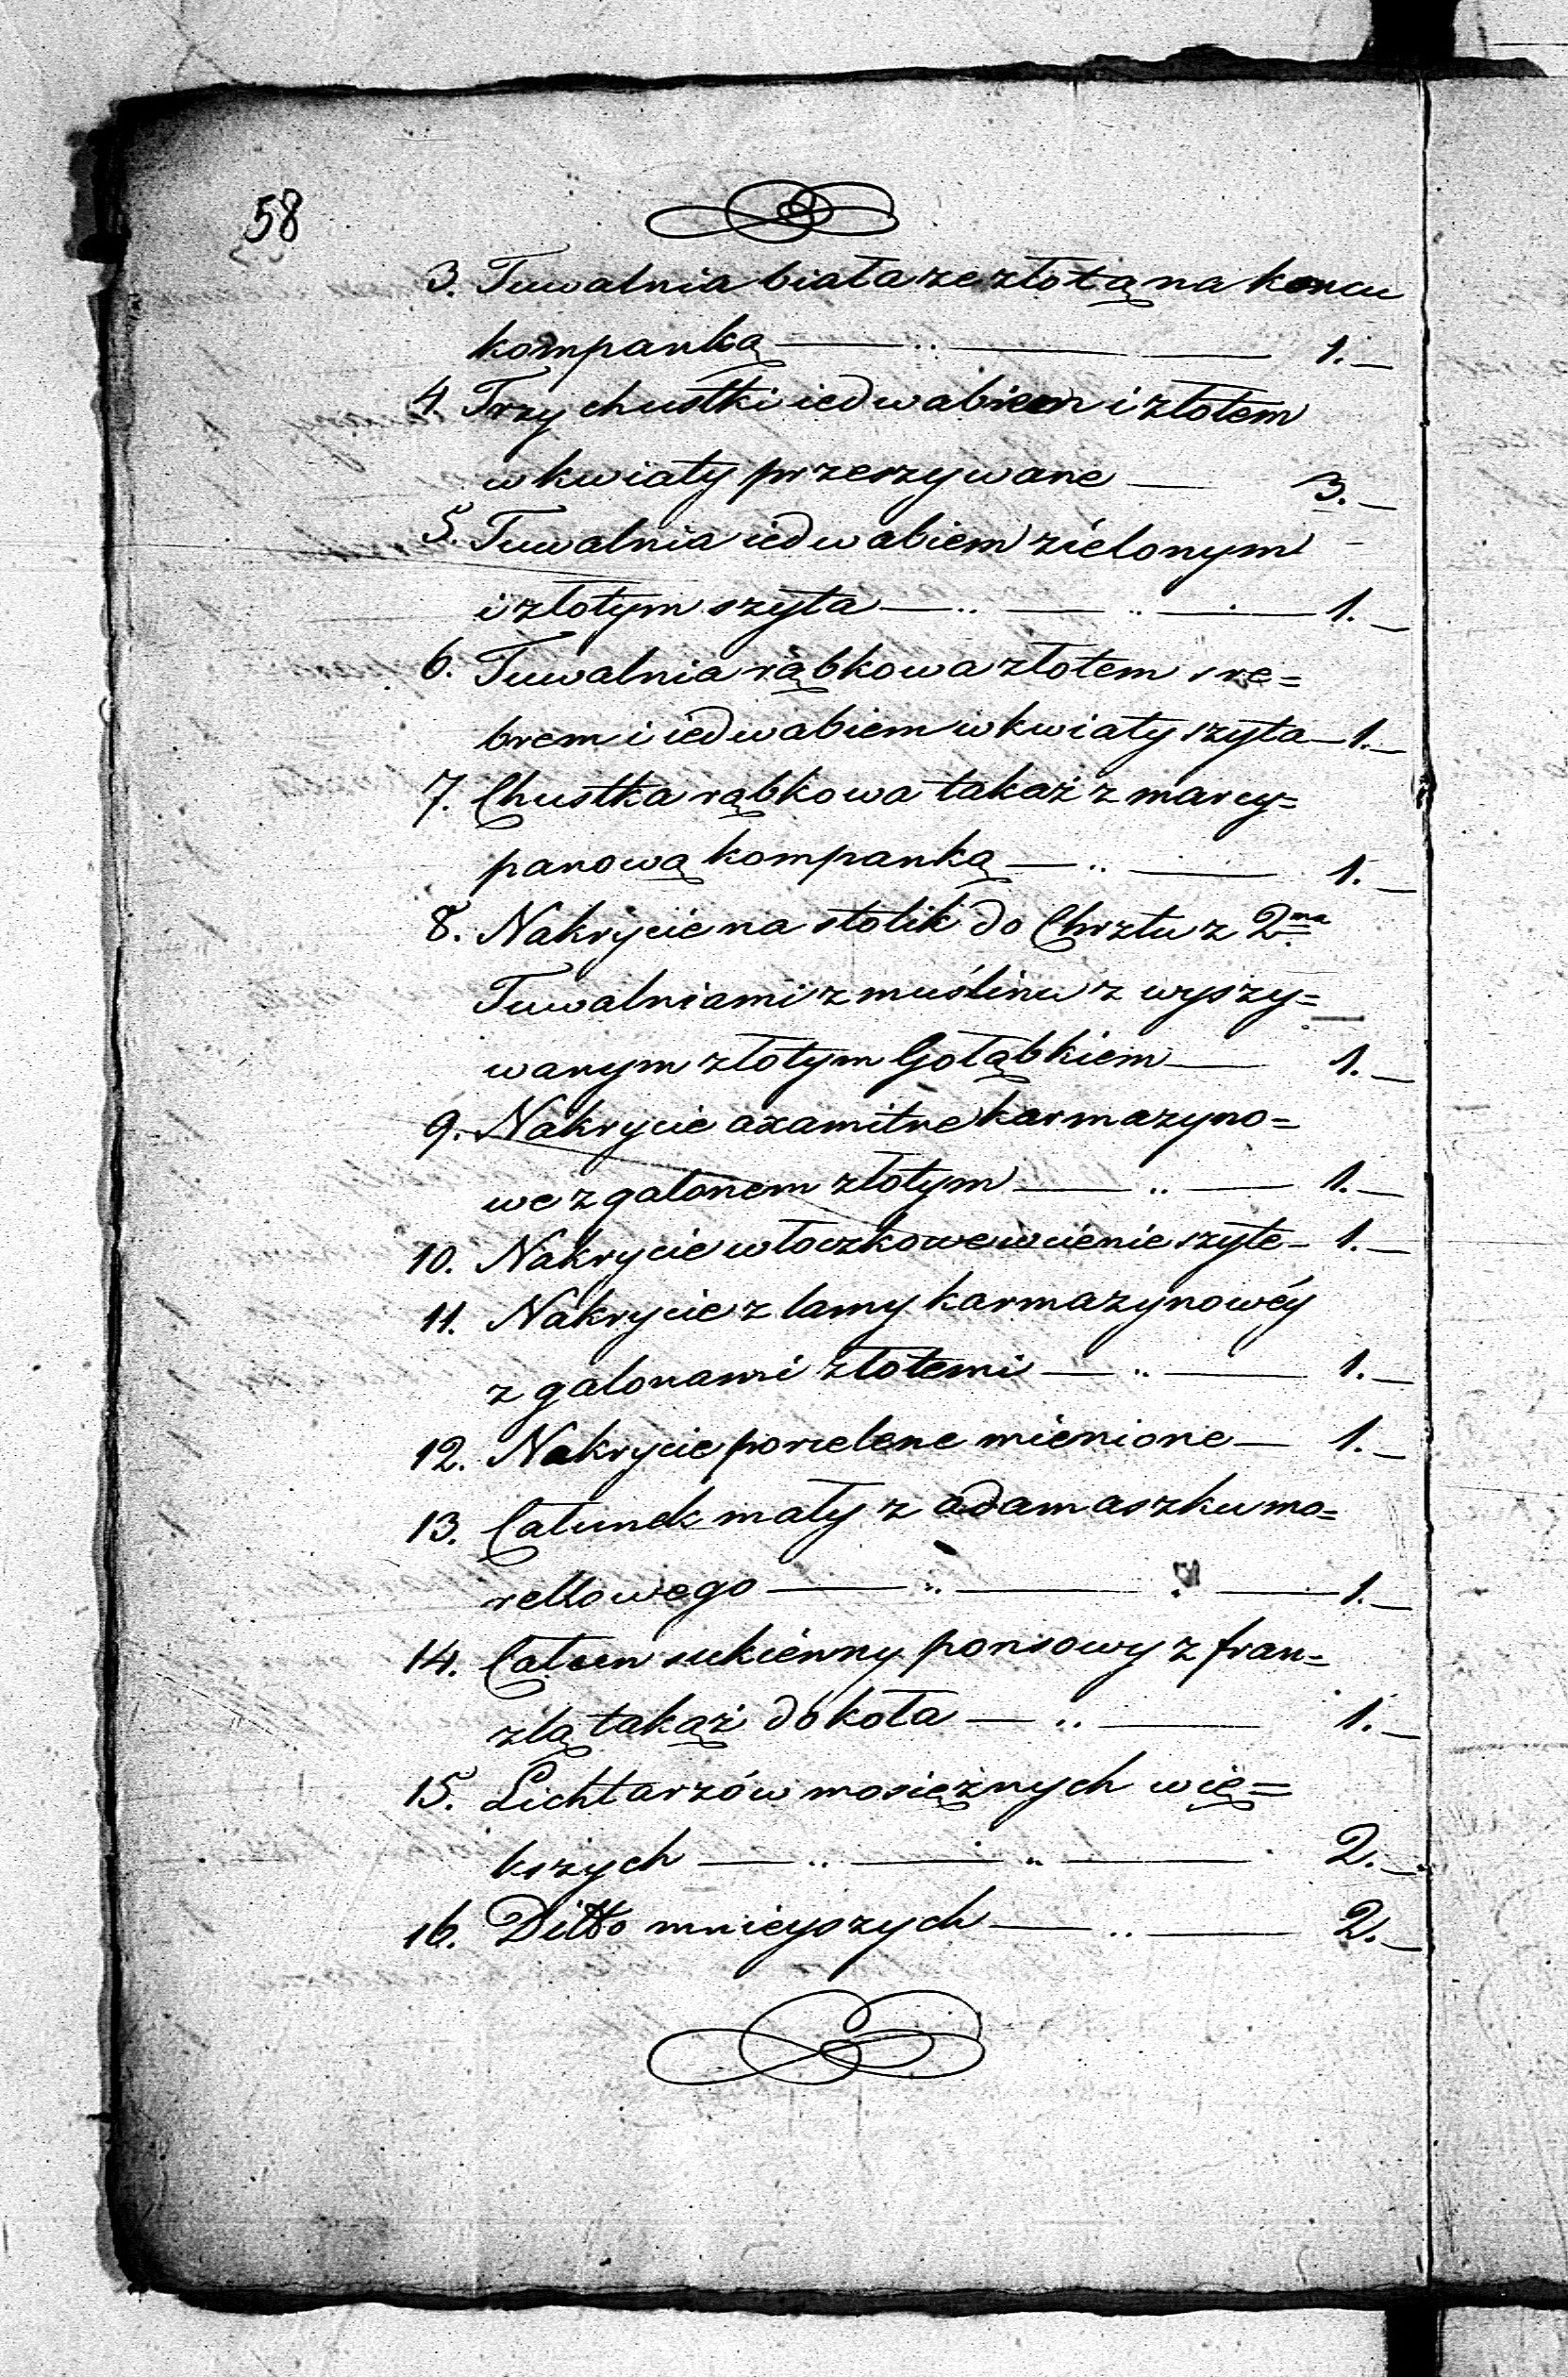 58
3. Tuwalnia biała ze złotą na koncu
kompanką — .. — — 1. —
4. Trzy chustki iedwabiem i złotem
w kwiaty przeszywane — 3. —
5. Tuwalnia iedwabiem zielonym
i złotym szyta — .. — .. — 1. —
6. Tuwalnia rąbkowa złotem sre=
brem i iedwabiem w kwiaty szyta — 1. —
7. Chustka rąbkowa takaż z marcy=
panową kompanką — .. — 1. —
8. Nakrycie na stolik do Chrztu z 2ma
Tuwalniami z muślinu z wyszy=
wanym złotym Gołąbkiem — 1. —
9. Nakrycie axamitne karmazyno=
we z galonem złotym — .. — 1. —
10. Nakrycie włoczkowe w cienie szyte — 1. —
11. Nakrycie z lamy karmazynowéy
z galonami złotemi — .. — 1. —
12. Nakrycie mienione — 1. —
13. Całunek mały z adamaszku mo=
rellowego — .. — . — 1. —
14. Całun sukienny ponsowy z fran=
zlą takąż do koła — .. — 1. —
15. Lichtarzów mosiężnych wię=
kszych — .. — .. — 2. —
16. Ditto mnieyszych — .. — 2. —